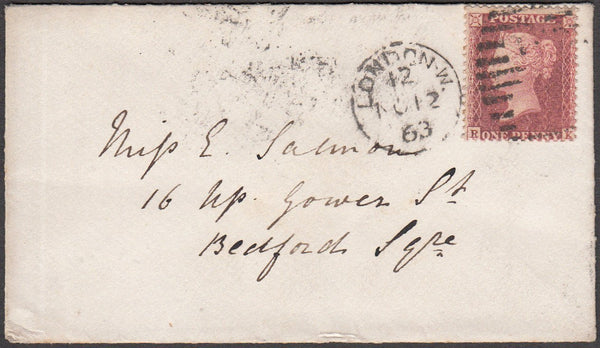 POSTAGE
LONDON·W.
12
NO 12
63
R ONE PENNY K
Miss E. Salmon
16 Up. Gower St
Bedford Sqre